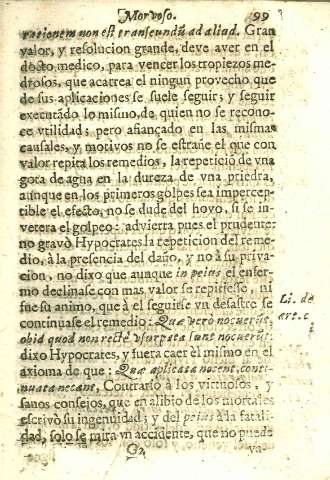 Morvoso. 99
rationem non est transeundū ad aliad. Gran
valor, y resolucion grande, deve aver en el
docto medico, para vencer los tropiezos me-
drosos, que acatrea el ningun provecho que
de sus aplicaciones se suele seguir; y seguir
executādo lo mismo, de quien no se recono-
ce vtilidad; pero afiançado en las mismas
causales, y motivos no se estrañe el que con
valor repita los remedios, la repetició de vna
gota de agua en la dureza de vna priedra,
aunque en los primeros golpes sea impercep-
tible el efecto, no se dude del hoyo, si se in-
vetera el golpeo: advierta pues el prudente:
no gravò Hypocrates la repeticion del reme-
dio, à la presencia del daño, y no à su priva-
cion, no dixo que aunque in peius el enfer-
mo declinase con mas valor se repitiese, ni
fue su animo, que à el seguirse vn desastre se
continuase el remedio: Quæ verò nocuerūt,
obid quod non rectè vsurpata sunt nocuerūt:
dixo Hypocrates, y fuera caer èl mismo en el
axioma de que: Quæ aplicata nocent, conti-
nuata necant, Contrario à los virtuosos, y
sanos consejos, que en alibio de los mortales
escrivò su ingenuidad; y del peius à la fatali-
dad, solo se mira vn accidente, que no puede
G2 va-
Li. de
art. c